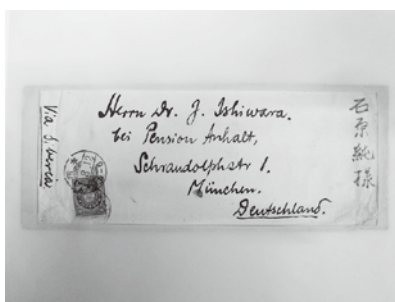 Via Siberia
Herrn Dr. J. Ishiwara.
bei Pension Anhalt,
Schraudolphstr 1.
München.
Deutschland.
石原純様